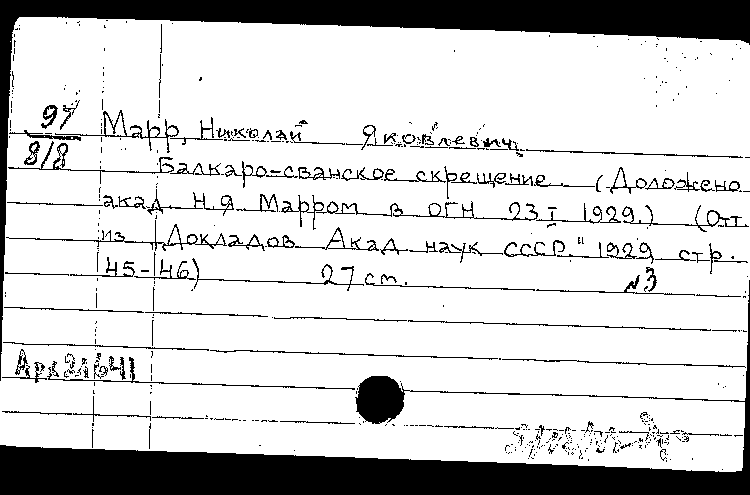 97
8/8
Марр, Николай Яковлевич.
Балкаро-сванское скрещение. (Доложено
акад. Н.Я. Марром в ОГН 23 I 1929.) (Отт.
из „Докладов Акад. наук СССР." 1929 стр.
45-46) 27 cm. №3
Арх 21641